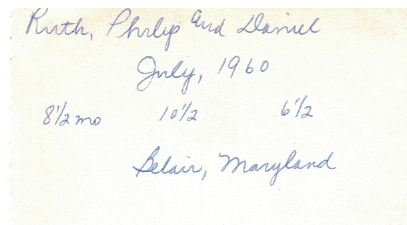 Ruth, Philip and Daniel
July, 1960
8 1/2 mo 10 1/2 6 1/2
Belair, Maryland